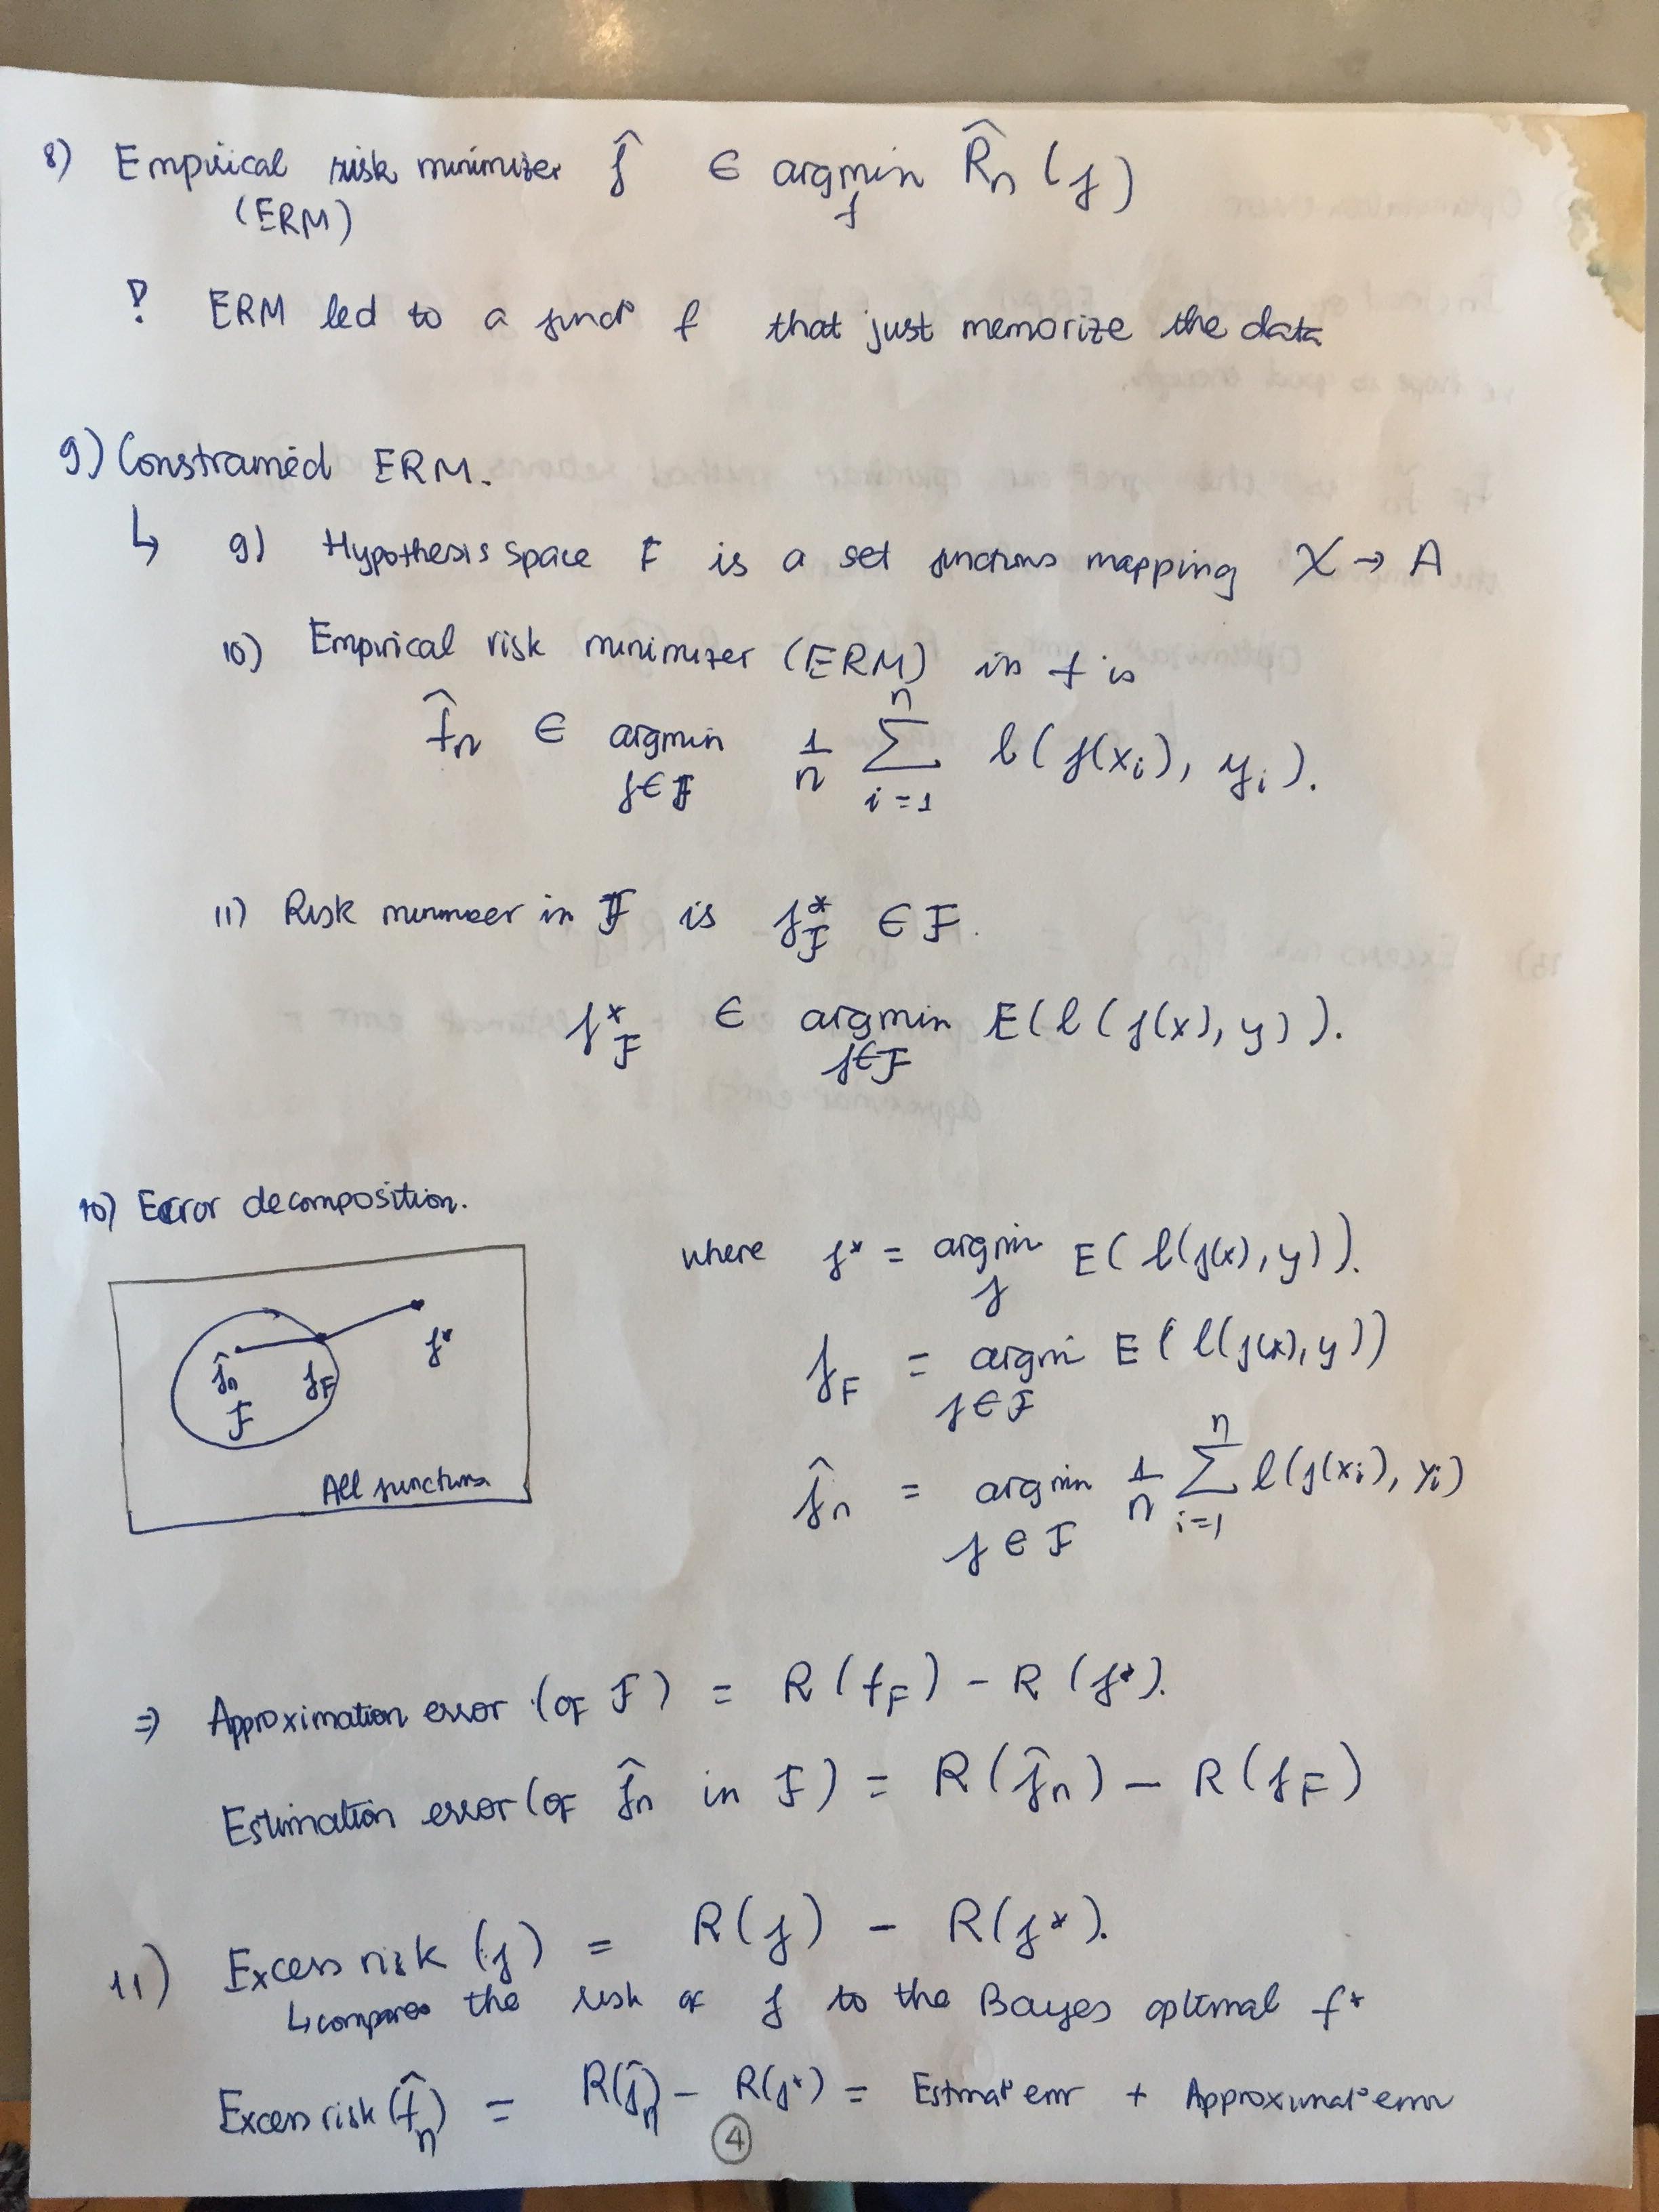 8) Empirical risk minimizer f̂ ∈ argmin R̂n (f)
(ERM) f
! ERM led to a funct° f that just memorize the data
9) Constrained ERM.
↳ 9) Hypothesis space F is a set functions mapping X → A
10) Empirical risk minimizer (ERM) in f is
f̂n ∈ argmin f∈F 1/n Σ i=1 n l(f(xi), yi).
11) Risk minimizer in F is f*F ∈ F.
f*F ∈ argmin f∈F E(l(f(x), y)).
10) Error decomposition.
where f* = argmin f E(l(f(x), y)).
fF = argmin f∈F E(l(f(x), y))
f̂n = argmin f∈F 1/n Σ i=1 n l(f(xi), yi)
f̂n fF f*
F
All functions
⇒ Approximation error (of F) = R(fF) - R(f*).
Estimation error (of f̂n in F) = R(f̂n) - R(fF)
11) Excess risk (f) = R(f) - R(f*).
↳ compares the risk of f to the Bayes optimal f*
Excess risk (f̂n) = R(f̂n) - R(f*) = Estimat° error + Approximat° error
4